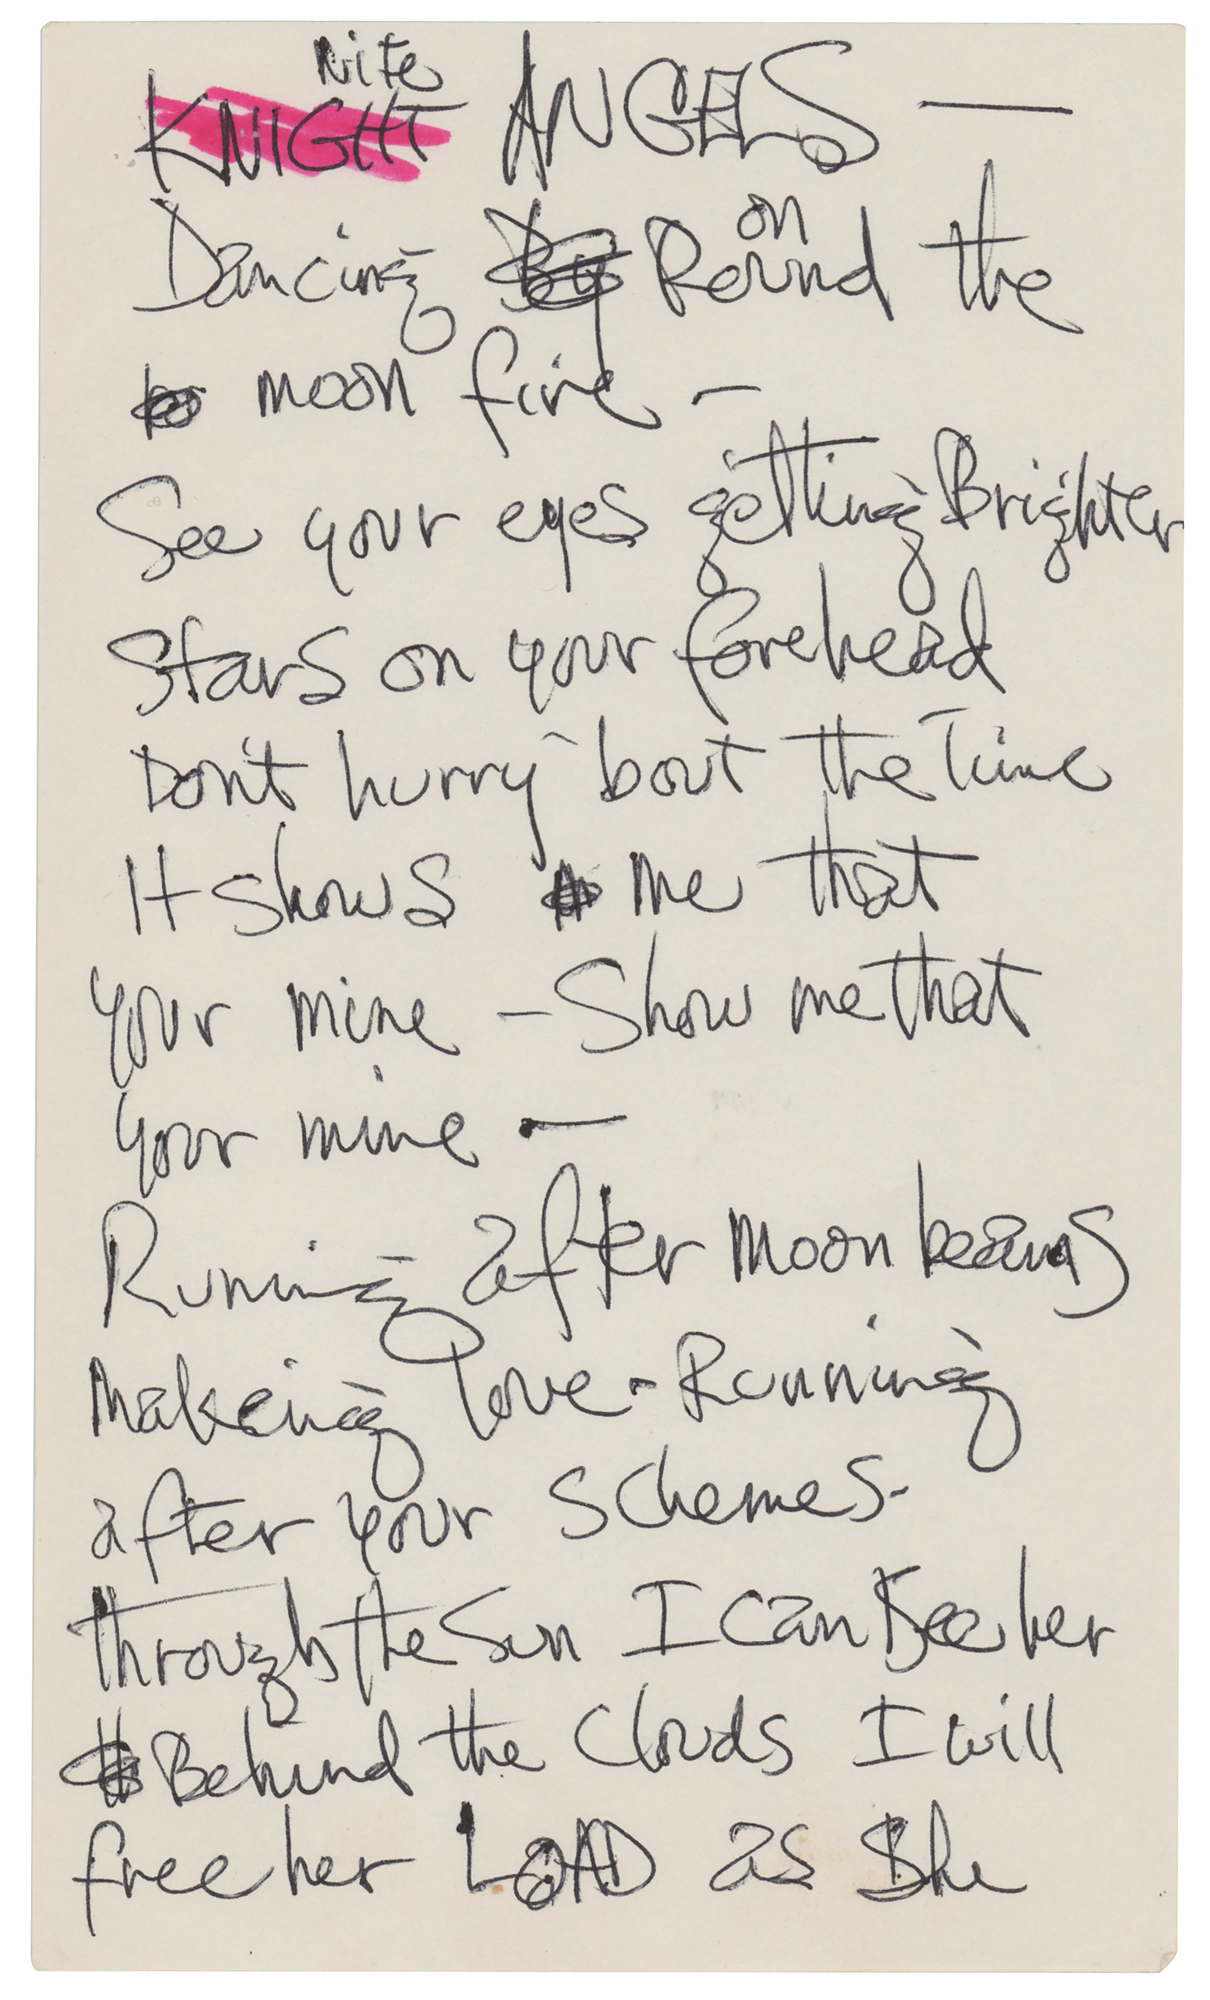 Nite
KNIGHT ANGELS —
on
Dancing By Round the
moon fire —
See your eyes getting Brighter
Stars on your forehead
Don't hurry bout the Time
It shows me that
your mine – Show me that
your mine —
Runing after Moon beams
Makeing love - Running
after your schemes -
through the Sun I can See her
Behind the Clouds I will
free her LOAD as She